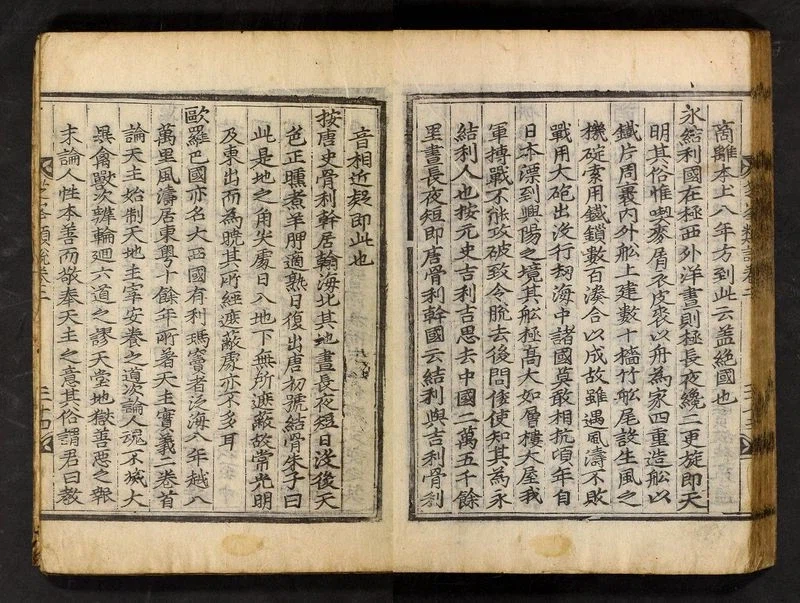 商離本土八年方到此云蓋絶國也
永結利國在極西外洋晝則極長夜纔二更旋即天
明其俗惟喫麥屑衣皮裘以舟為家四重造舩以
鐵片周裹內外舩上建數十檣竹舩尾設生風之
機碇索用鐵鎖數百湊合以成故雖遇風濤不敗
戰用大砲出沒行刼海中諸國莫敢相抗頃年自
日本漂到興陽之境其舩極高大如層樓大屋我
軍搏戰不能攻破致令脫去後問倭使知其為永
結利人也按元史吉利吉思去中國二萬五千餘
里晝長夜短即唐骨利幹國云結利與吉利骨利
音相近疑即此也
按唐史骨利幹居瀚海北其地晝長夜短日没後天
色正曛煮羊胛適熟日復出唐初號結骨朱子曰
此是地之角尖處日入地下無所遮蔽故常光明
及東出而為曉其所經遮蔽處亦不多耳
歐羅巴國亦名大西國有利瑪竇者泛海八年越八
萬里風濤居東粤十餘年所著天主實義二卷首
論天主始制天地主宰安養之道次論人魂不滅大
異禽獸次辨輪廻六道之謬天堂地獄善惡之報
末論人性本善而敬奉天主之意其俗謂君曰教
芝峯類說卷二
三十四